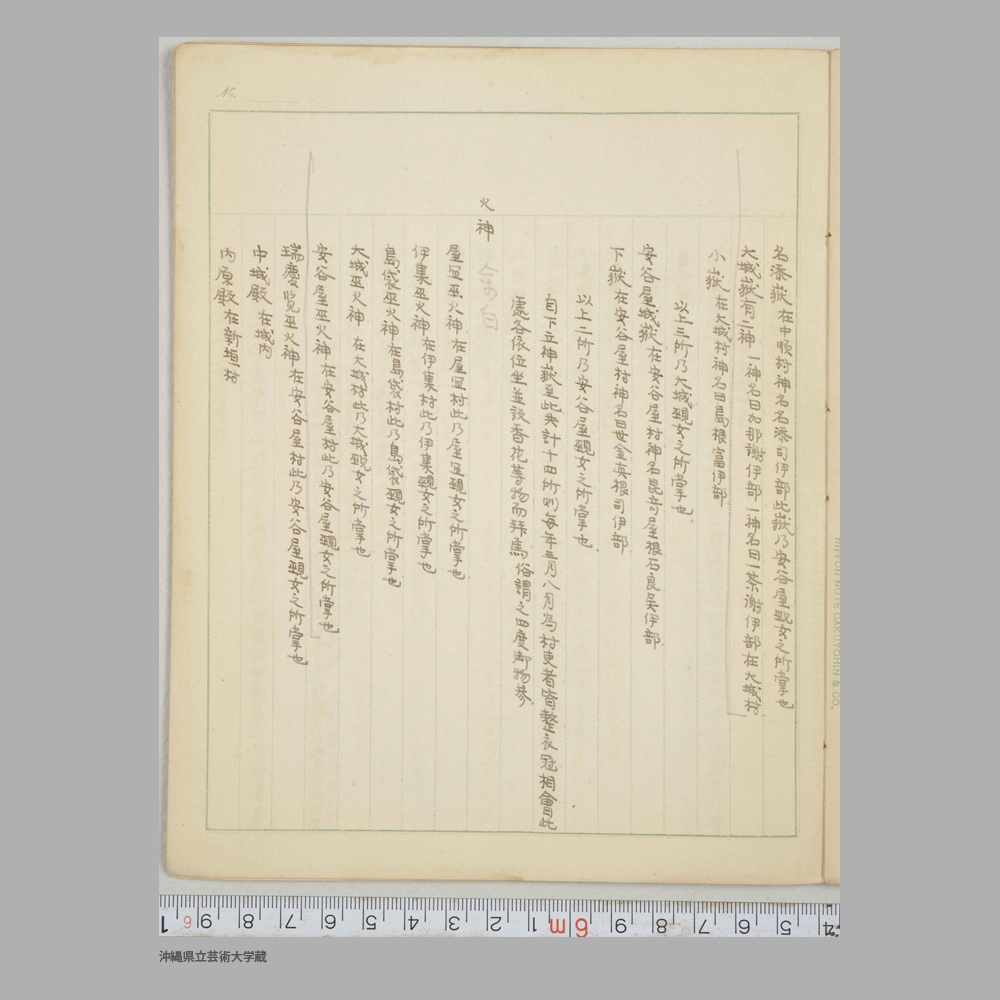 No.
名添嶽 在中順村神名名添司伊部此嶽乃安谷屋覡女之所掌也
大城嶽有二神 一神名曰加那謝伊部 一神名曰一茶謝伊部在大城村
小嶽 在大城村神名曰島根富伊部
以上三所乃大城覡女之所掌也
安谷屋城嶽 在安谷屋村神名昆 司屋根石良吴伊部
下嶽 在安谷屋村神名曰世金真根司伊部
以上二所乃安谷屋覡女之所掌也
自下立神嶽至此共計十四所則每年三月八月為村吏者皆整衣冠相會此
處各依位坐並設香花等物而拜焉俗謂之四度御物參
火神
屋冝巫火神 在屋冝村此乃屋冝覡女之所掌也
伊集巫火神 在伊集村此乃伊集覡女之所掌也
島袋巫火神 在島袋村此乃島袋覡女之所掌也
大城巫火神 在大城村此乃大城覡女之所掌也
安谷屋巫火神 在安谷屋村此乃安谷屋覡女之所掌也
瑞慶覧巫火神 在安谷屋村此乃安谷屋覡女之所掌也
中城殿 在城內
內原殿 在新垣村
NIPPON NOTE GAKUYOHIN & CO.
1 6 9 8 7 6 5 4 3 2 1 6m 9 8 7 6 5 4
沖縄県立芸術大学蔵